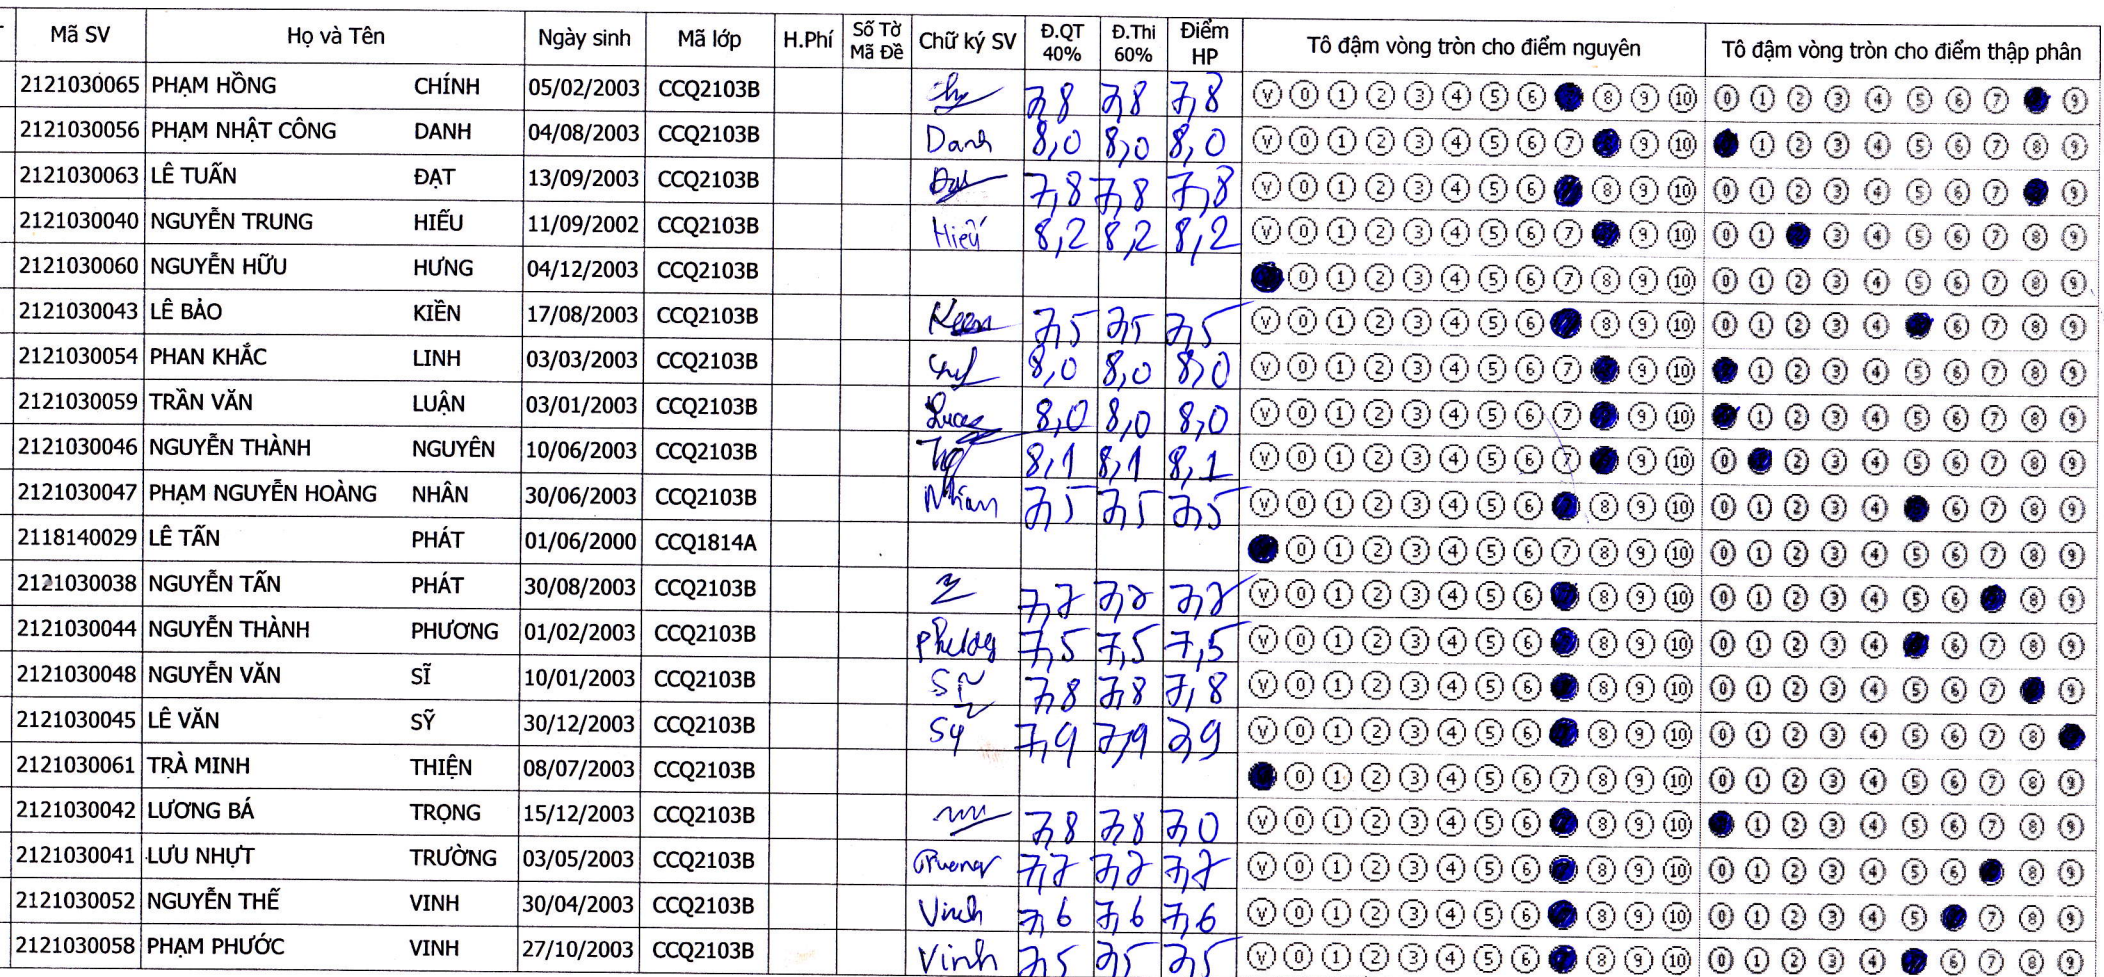 Mã SV Họ và Tên Ngày sinh Mã lớp H.Phí Số Tờ Mã Đề Chữ ký SV Đ.QT 40% Đ.Thi 60% Điểm HP Tô đậm vòng tròn cho điểm nguyên Tô đậm vòng tròn cho điểm thập phân
2121030065 PHẠM HỒNG CHÍNH 05/02/2003 CCQ2103B 7,8 7,8 7,8 V 0 1 2 3 4 5 6 8 9 10 0 1 2 3 4 5 6 7 9
2121030056 PHẠM NHẬT CÔNG DANH 04/08/2003 CCQ2103B Danh 8,0 8,0 8,0 V 0 1 2 3 4 5 6 7 9 10 1 2 3 4 5 6 7 8 9
2121030063 LÊ TUẤN ĐẠT 13/09/2003 CCQ2103B Đạt 7,8 7,8 7,8 V 0 1 2 3 4 5 6 8 9 10 0 1 2 3 4 5 6 7 9
2121030040 NGUYỄN TRUNG HIẾU 11/09/2002 CCQ2103B Hiếu 8,2 8,2 8,2 V 0 1 2 3 4 5 6 7 9 10 0 1 3 4 5 6 7 8 9
2121030060 NGUYỄN HỮU HƯNG 04/12/2003 CCQ2103B 0 1 2 3 4 5 6 7 8 9 10 0 1 2 3 4 5 6 7 8 9
2121030043 LÊ BẢO KIỀN 17/08/2003 CCQ2103B 7,5 7,5 7,5 V 0 1 2 3 4 5 6 8 9 10 0 1 2 3 4 6 7 8 9
2121030054 PHAN KHẮC LINH 03/03/2003 CCQ2103B 8,0 8,0 8,0 V 0 1 2 3 4 5 6 7 9 10 1 2 3 4 5 6 7 8 9
2121030059 TRẦN VĂN LUẬN 03/01/2003 CCQ2103B 8,0 8,0 8,0 V 0 1 2 3 4 5 6 7 9 10 1 2 3 4 5 6 7 8 9
2121030046 NGUYỄN THÀNH NGUYÊN 10/06/2003 CCQ2103B 8,1 8,1 8,1 V 0 1 2 3 4 5 6 7 9 10 0 2 3 4 5 6 7 8 9
2121030047 PHẠM NGUYỄN HOÀNG NHÂN 30/06/2003 CCQ2103B Nhân 7,5 7,5 7,5 V 0 1 2 3 4 5 6 8 9 10 0 1 2 3 4 6 7 8 9
2118140029 LÊ TẤN PHÁT 01/06/2000 CCQ1814A 0 1 2 3 4 5 6 7 8 9 10 0 1 2 3 4 5 6 7 8 9
2121030038 NGUYỄN TẤN PHÁT 30/08/2003 CCQ2103B 7,7 7,7 7,7 V 0 1 2 3 4 5 6 8 9 10 0 1 2 3 4 5 6 8 9
2121030044 NGUYỄN THÀNH PHƯƠNG 01/02/2003 CCQ2103B Phương 7,5 7,5 7,5 V 0 1 2 3 4 5 6 8 9 10 0 1 2 3 4 6 7 8 9
2121030048 NGUYỄN VĂN SĨ 10/01/2003 CCQ2103B Sĩ 7,8 7,8 7,8 V 0 1 2 3 4 5 6 8 9 10 0 1 2 3 4 5 6 7 9
2121030045 LÊ VĂN SỸ 30/12/2003 CCQ2103B Sỹ 7,9 7,9 7,9 V 0 1 2 3 4 5 6 8 9 10 0 1 2 3 4 5 6 7 8
2121030061 TRÀ MINH THIỆN 08/07/2003 CCQ2103B 0 1 2 3 4 5 6 7 8 9 10 0 1 2 3 4 5 6 7 8 9
2121030042 LƯƠNG BÁ TRỌNG 15/12/2003 CCQ2103B 7,8 7,8 7,0 V 0 1 2 3 4 5 6 8 9 10 1 2 3 4 5 6 7 8 9
2121030041 LƯU NHỰT TRƯỜNG 03/05/2003 CCQ2103B Truong 7,7 7,7 7,7 V 0 1 2 3 4 5 6 8 9 10 0 1 2 3 4 5 6 8 9
2121030052 NGUYỄN THẾ VINH 30/04/2003 CCQ2103B Vinh 7,6 7,6 7,6 V 0 1 2 3 4 5 6 8 9 10 0 1 2 3 4 5 7 8 9
2121030058 PHẠM PHƯỚC VINH 27/10/2003 CCQ2103B Vinh 7,5 7,5 7,5 V 0 1 2 3 4 5 6 8 9 10 0 1 2 3 4 6 7 8 9